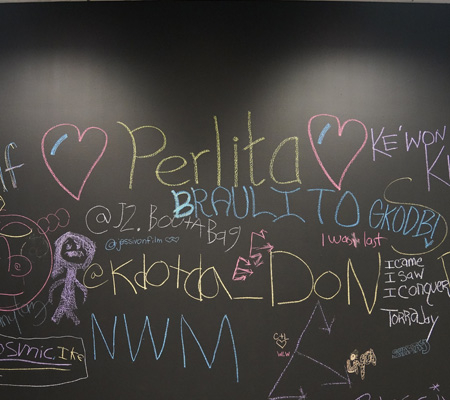 Perlita
KE'WON
BRAULITO
GKODB
@J2.BootABag
@jpssvonfilm
I was last
@Kdotda_DON
I came
I saw
I conquer
Torraby
NWM